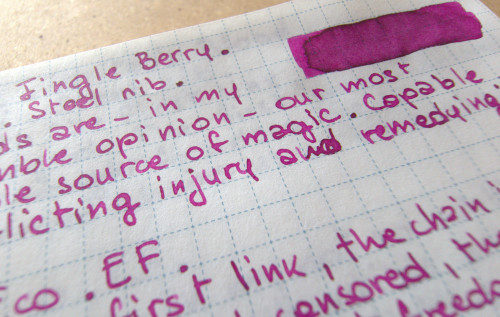 Jingle Berry.
. Steel nib.
ds are - in my
mble opinion - our most
le source of magic. Capable
flicting injury and remedying
Eco. EF.
first link, the chain
censored, the
freedom